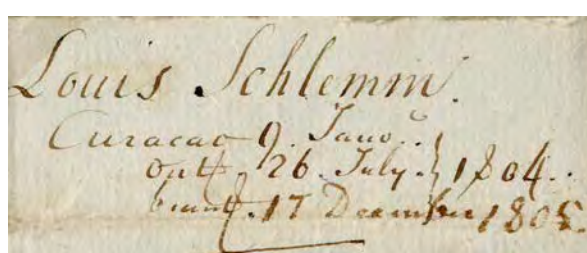 Louis Schlemm.
Curacao 9. Janu..
ont. 26. July. } 1804..
beant. 17 December 1805.